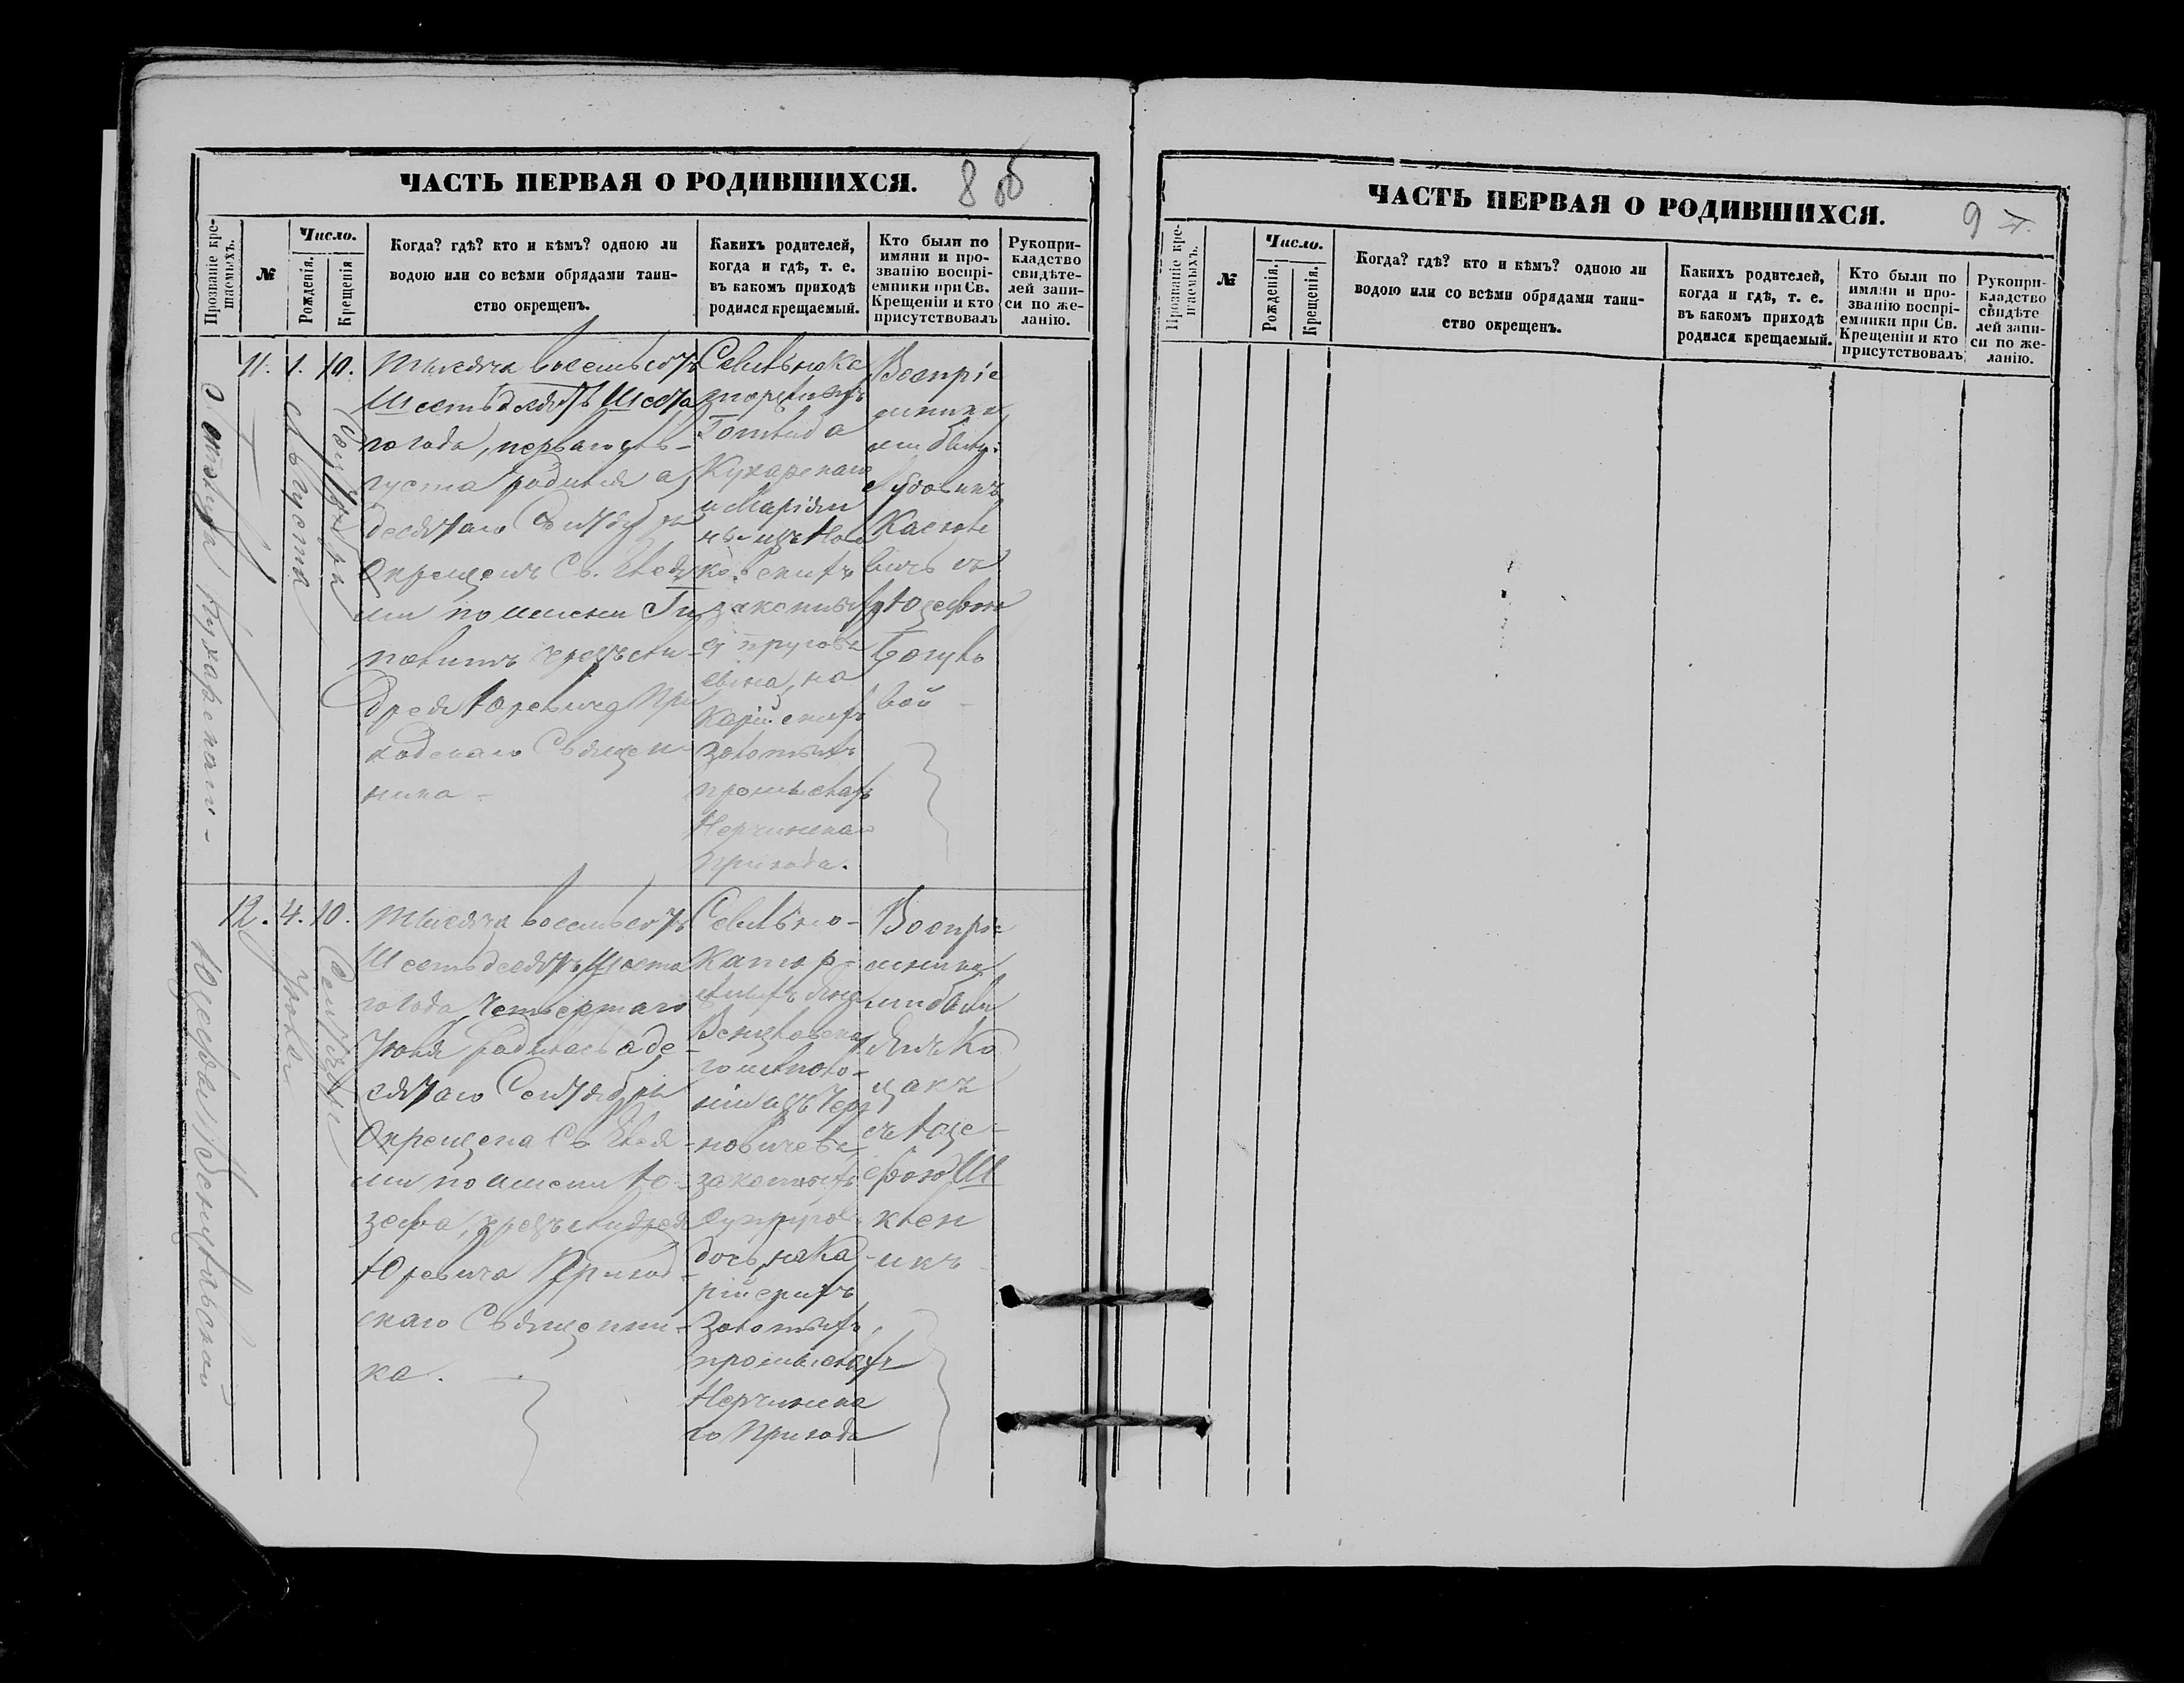 ЧАСТЬ ПЕРВАЯ О РОДИВШИХСЯ.
8 об
Прозваніе кре-
щаемыхъ.
№
Число.
Рожденія.
Крещенія
Когда? гдѣ? кто и кѣмъ? одною ли
водою или со всѣми обрядами таин-
ство окрещенъ.
Какихъ родителей,
когда и гдѣ, т. е.
въ какомъ приходѣ
родился крещаемый.
Кто были по
имяни и про-
званію воспрі-
емники при Св.
Крещеніи и кто
присутствовалъ
Рукопри-
кладство
свидѣте-
лей запи-
си по же-
ланію.
Кухарскаго -
11.
1.
Августа
10.
Сентября
Тысяча восемьсотъ
Шестьдесятъ Шеста
го года, перваго Ав-
густа родился а
десятаго Сентября
Окрещенъ Св. Елея
ми по имени
чрезъ Ан-
дрея Юревича При
ходскаго Священ-
ника -
Ссыльнока
торжныхъ
Готлиба
Кухарскаго
и Маріян
ны изъ
законныхъ
супруговъ
сынъ, на
Карійскихъ
Золотыхъ
промыслахъ
Нерчинскаго
прихода.
Воспріе
мника
ми были:
Людовикъ
съ
Юзефою
вой -
12.
4.
Іюня
10.
Сентября
Тысяча восемьсотъ
Шестьдесятъ Шеста
го года, Четвертаго
Іюня родилась а де-
сятаго Сентября
Окрещена Св. Елея-
ми по имени Ю-
зефа, чрезъ Андрея
Юревича Приход-
скаго Священни-
ка.
Ссыльно-
каторж-
ныхъ Яна
го и
изъ
новичевъ
законныхъ
супруговъ
дочь, на Ка
рійскихъ
Золотыхъ,
промыслахъ
Нерчинска
го Прихода
Воспріе
мника
ми были
Янъ Ко
цакъ
съ Юзе-
фою
ЧАСТЬ ПЕРВАЯ О РОДИВШИХСЯ.
9
Прозваніе кре-
щаемыхъ.
№
Число.
Рожденія.
Крещенія.
Когда? гдѣ? кто и кѣмъ? одною ли
водою или со всѣми обрядами таин-
ство окрещенъ.
Какихъ родителей,
когда и гдѣ, т. е.
въ какомъ приходѣ
родился крещаемый.
Кто были по
имяни и про-
званію воспрі-
емники при Св.
Крещеніи и кто
присутствовалъ
Рукопри-
кладство
свидѣте
лей запи-
си по же-
ланію.